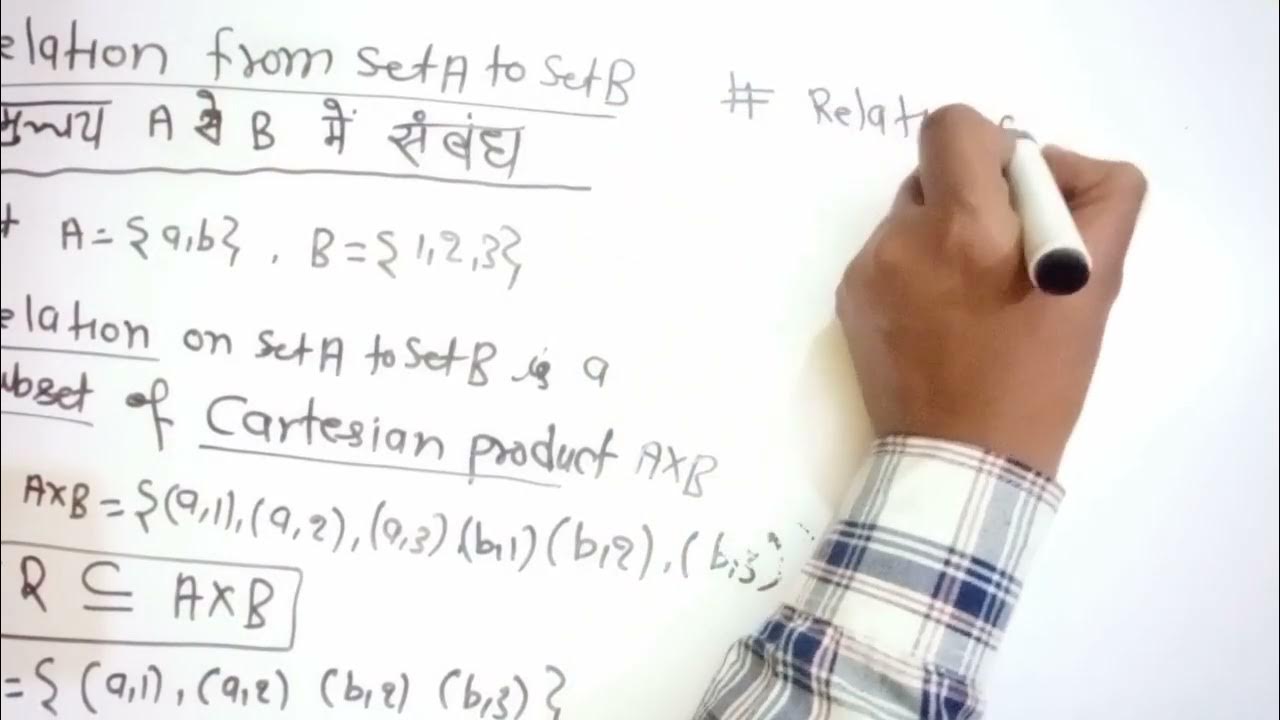 elation from set A to set B
मुच्चय A से B में संबंध
A = {a,b} , B = {1,2,3}
elation on set A to set B is a
ubset of Cartesian product A×B
A×B = {(a,1),(a,2),(a,3)(b,1)(b,2),(b,3)
R ⊆ A×B
= { (a,1), (a,2) (b,2) (b,3) }
# Relat